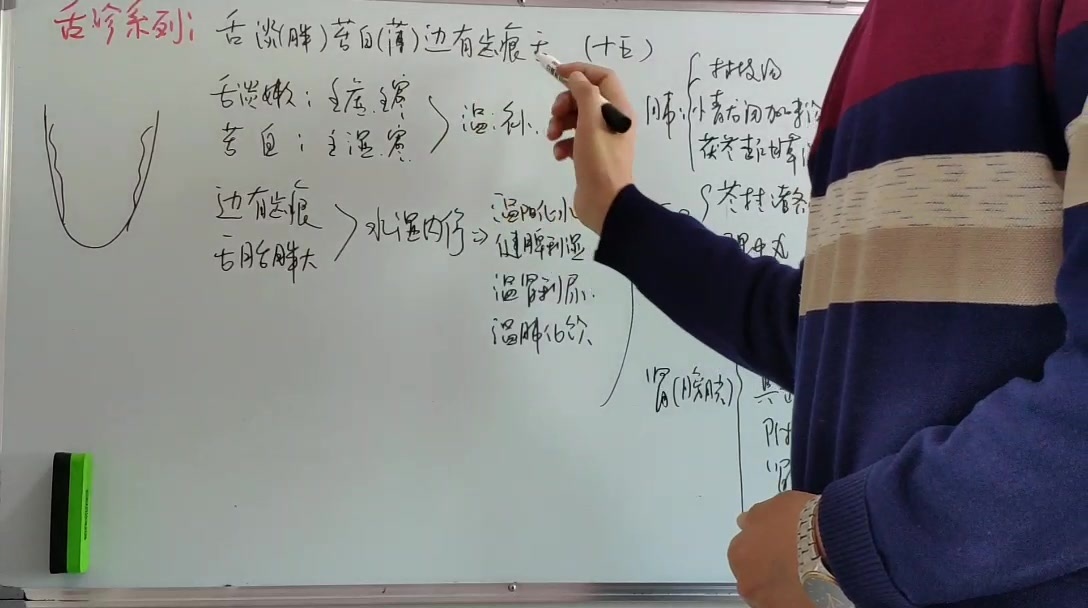 舌诊系列: 舌淡(胖)苔白(薄)边有齿痕舌 (十五)
舌淡嫩: 主虚.主寒
苔白: 主湿.寒
温补.
边有齿痕
舌体胖大
水湿内停⇒
温阳化水
健脾利湿
温肾利尿.
温肺化饮
肺:
桂枝汤
小青龙汤加
茯苓杏仁甘草
苓桂诸
理中丸
肾(膀胱)
真
附
肾